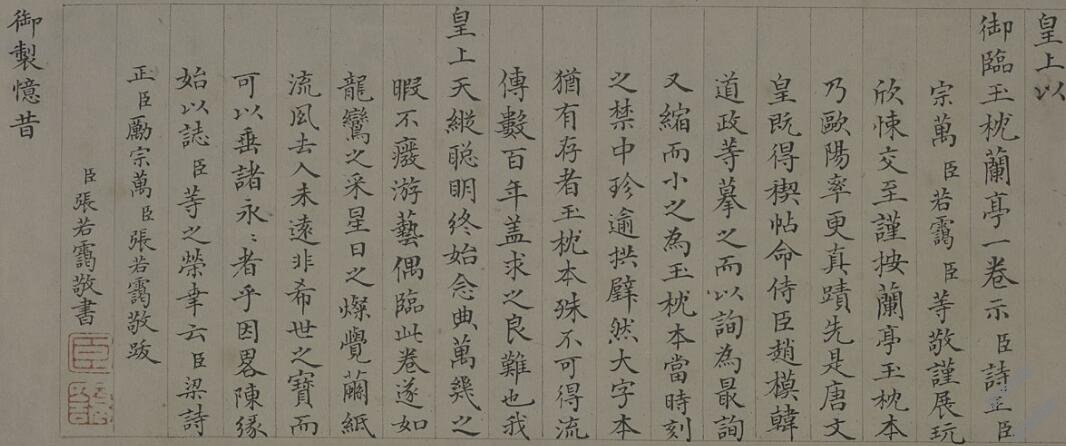 皇上以
御臨玉枕蘭亭一卷示臣詩正臣
宗萬臣若靄臣等敬謹展玩
欣悚交至謹按蘭亭玉枕本
乃歐陽率更真蹟先是唐文
皇既得禊帖命侍臣趙模韓
道政等摹之而以詢為最詢
又縮而小之為玉枕本當時刻
之禁中珍逾拱璧然大字本
猶有存者玉枕本殊不可得流
傳數百年盖求之良難也我
皇上天縱聰明終始念典萬幾之
暇不癈游藝偶臨此卷遂如
龍鸞之采星日之燦覺繭紙
流風去人未遠非希世之寶而
可以垂諸永〻者乎因畧陳緣
始以誌臣等之榮幸云臣梁詩
正臣勵宗萬臣張若靄敬跋
臣張若靄敬書
御製憶昔